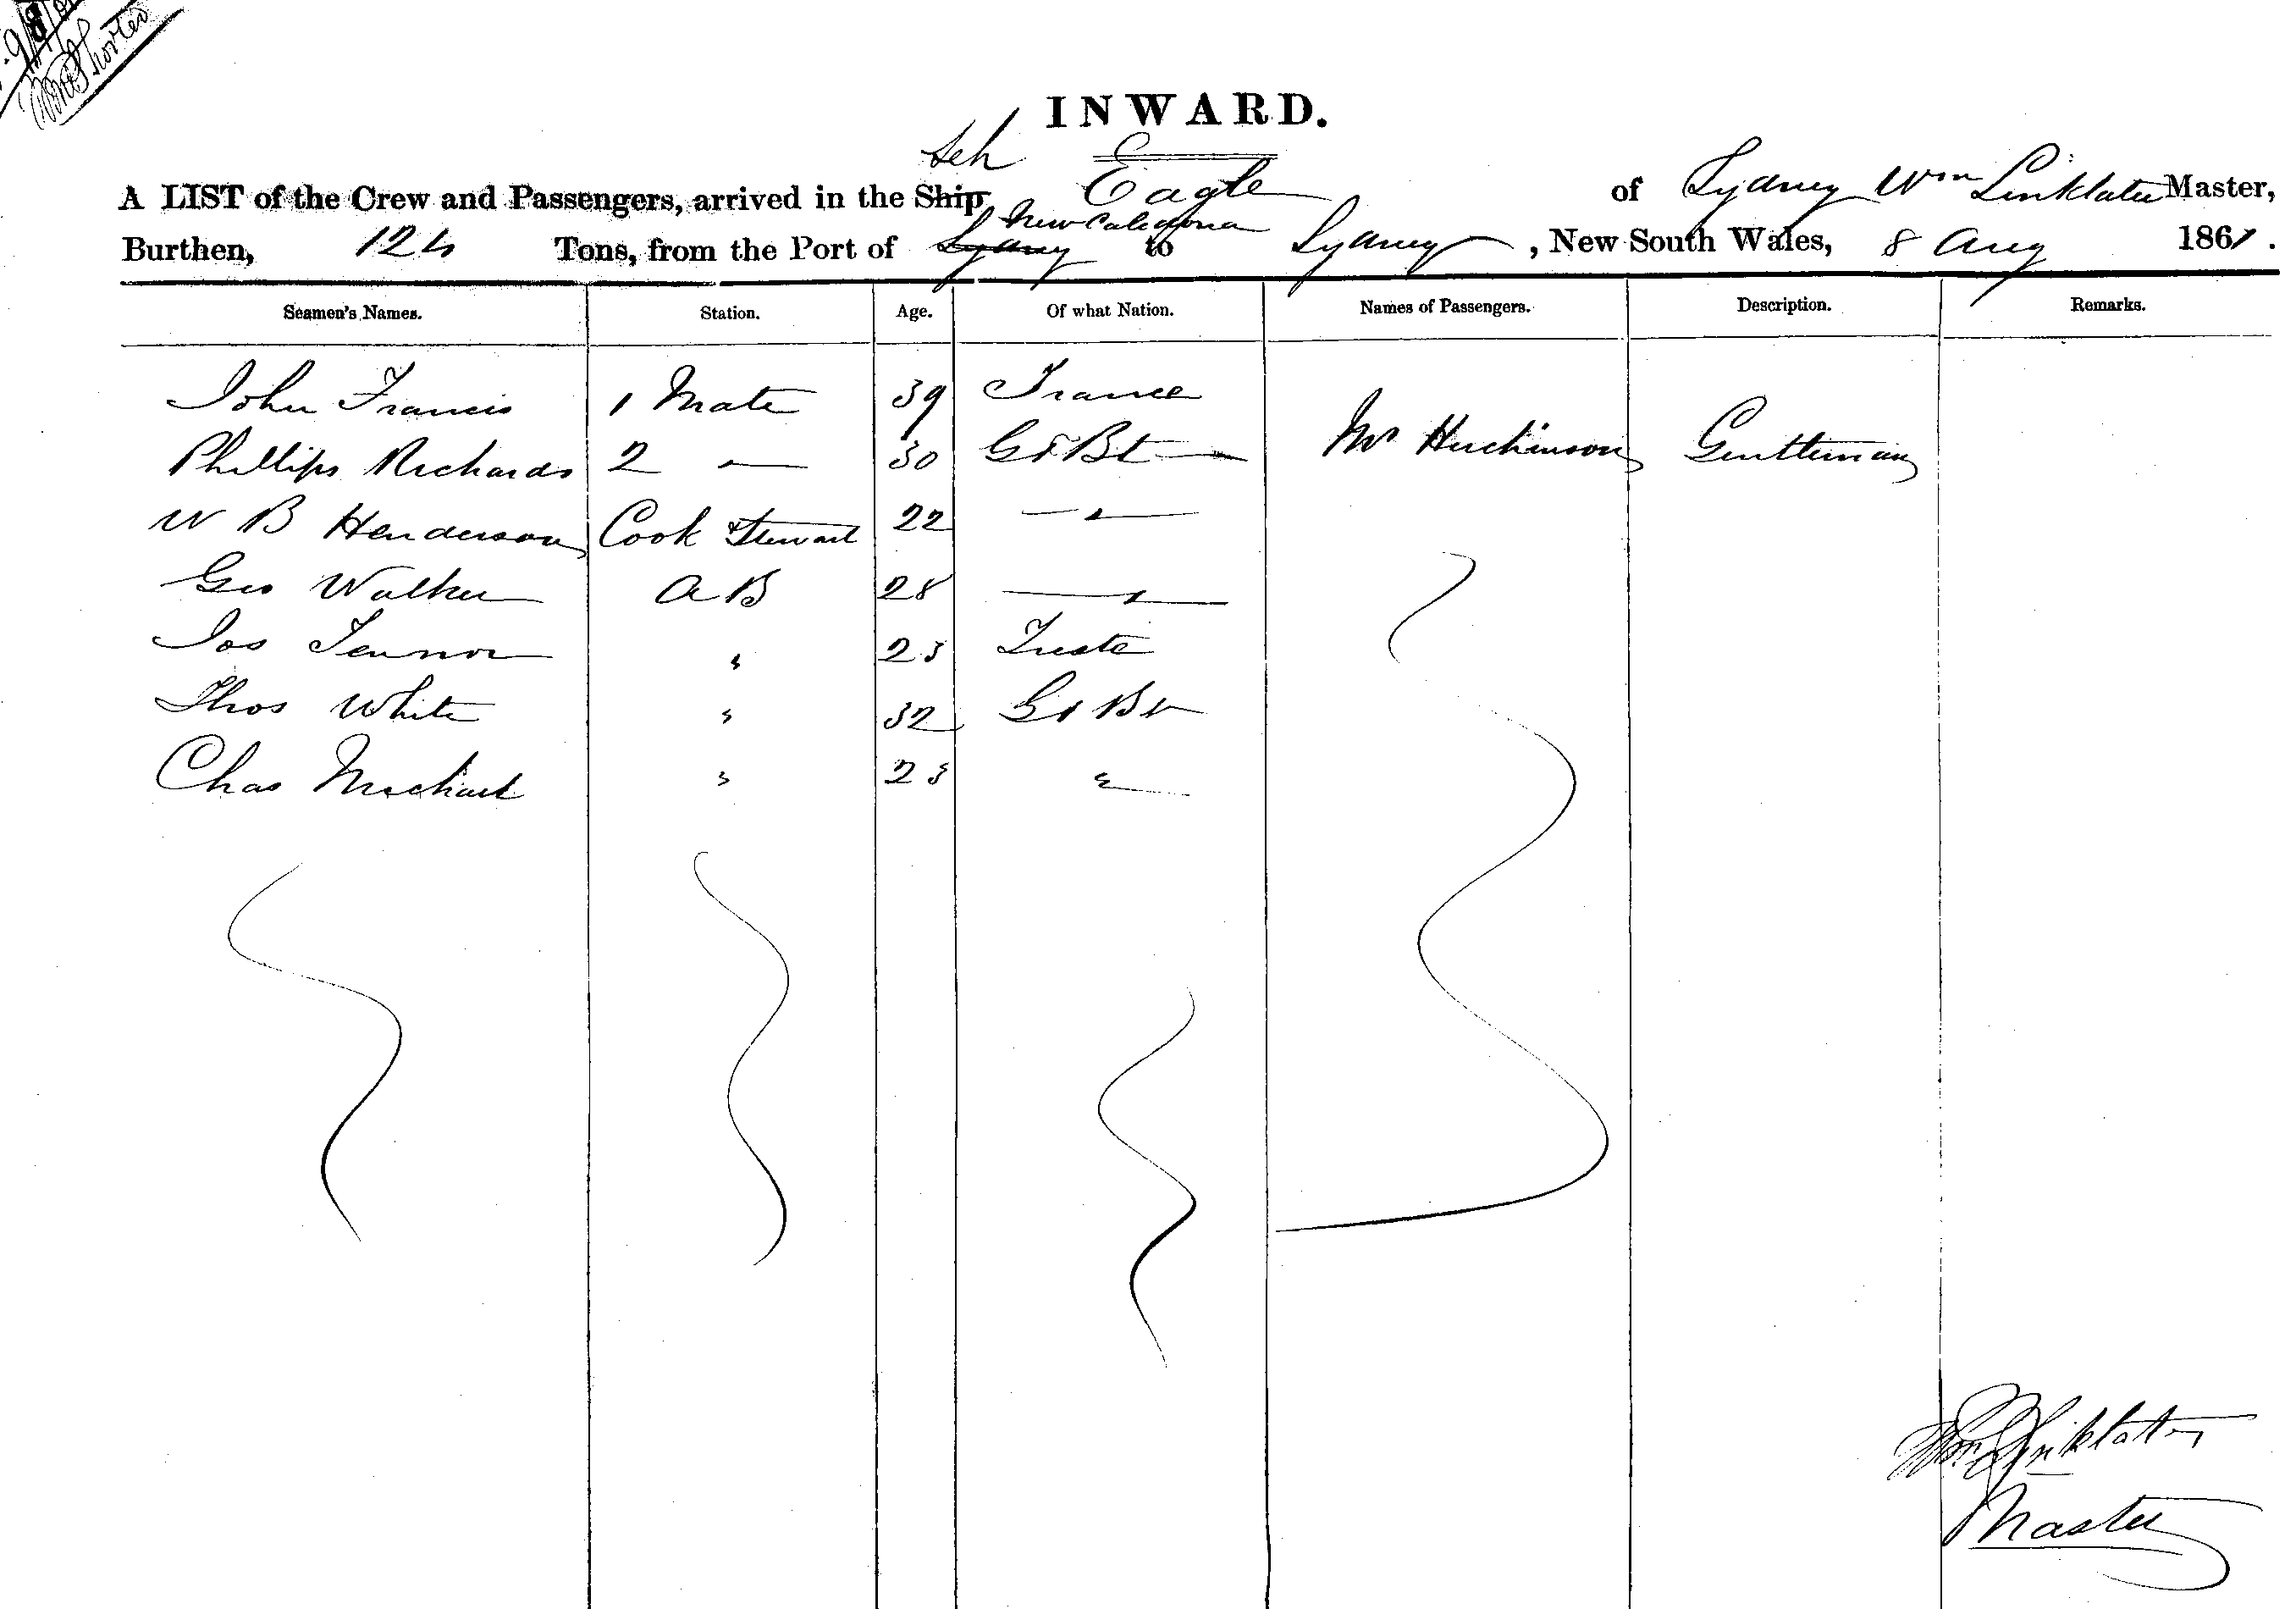 INWARD.
Sch Eagle
A LIST of the Crew and Passengers, arrived in the Ship, of Sydney Wm Linklater Master,
New Caledonia
Burthen, 124 Tons, from the Port of Sydney to Sydney, New South Wales, 8 Aug 1861.
Seamen's Names. Station. Age. Of what Nation. Names of Passengers. Description. Remarks.
John Francis 1 Mate 39 France
Phillips Richards 2 — 30 Gt Bt — Mr Huchinson Gentleman
W B Henderson Cook Steward 22 — " —
Geo Walker A B 28 — " —
Jos " 23
Thos White " 32 Gt Bt
Chas " 23 "
Wm Linklater
Master